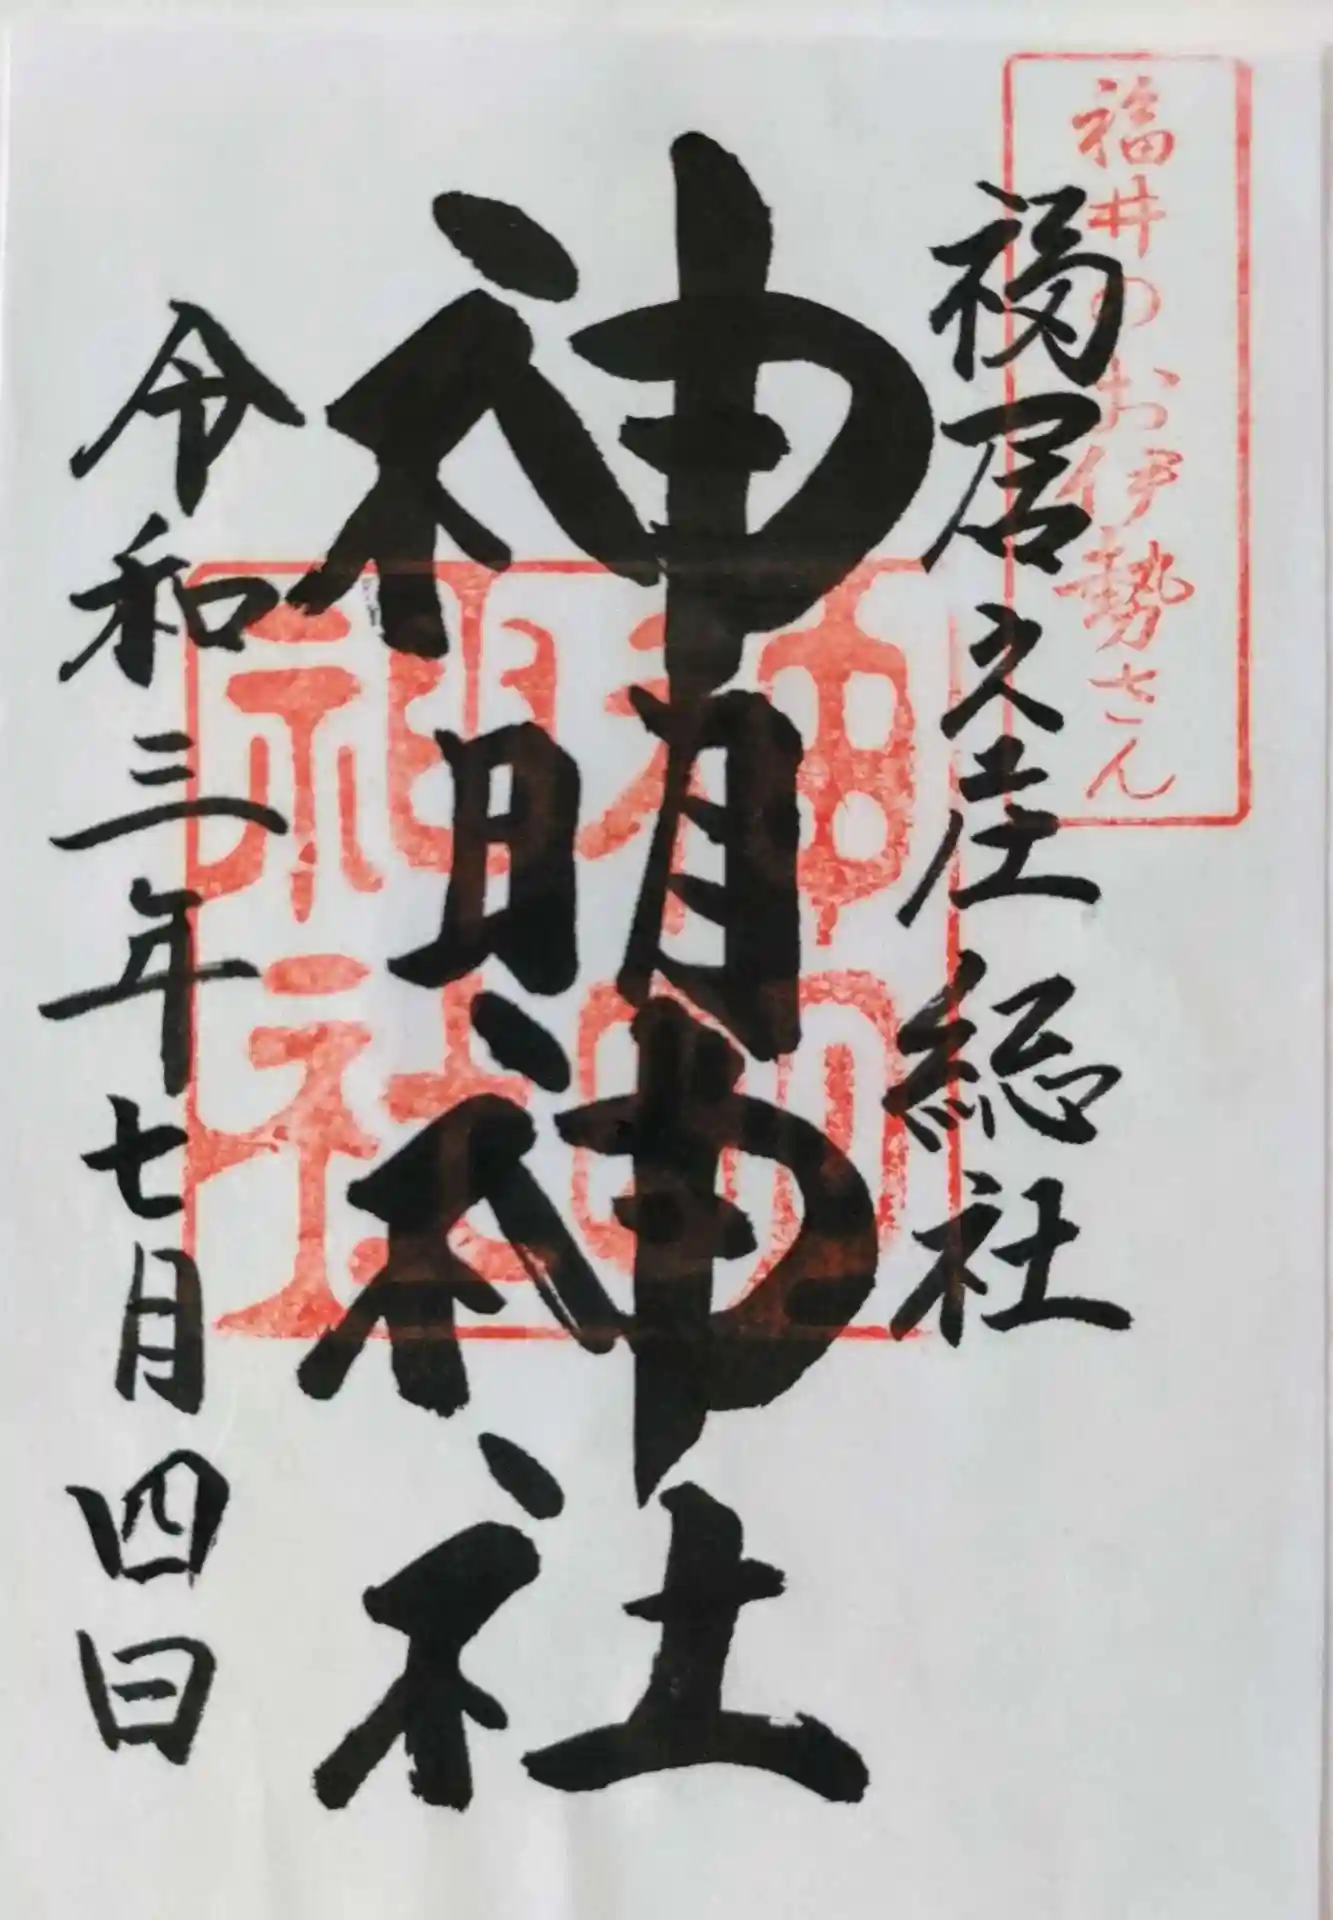 福井のお伊勢さん
福居之庄総社
神明神社
神明
神社
令和三年七月四日